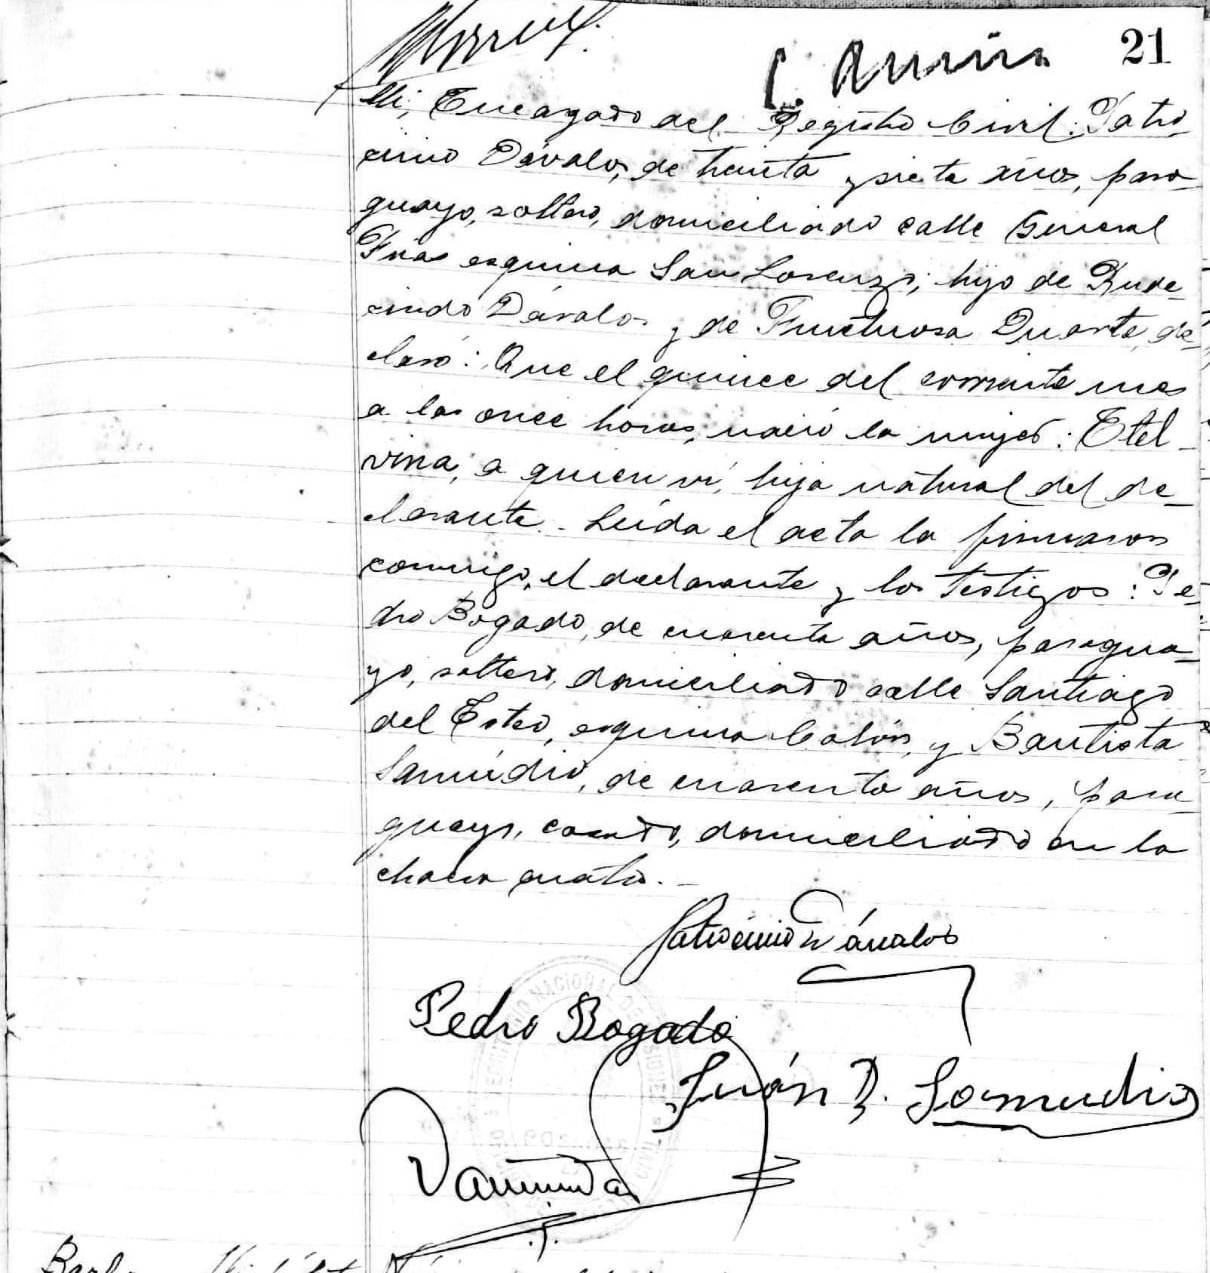 21
Mi, Encargado del Registro Civil: Patro-
cinio Dávalos, de treinta y siete años, para-
guayo, soltero, domiciliado calle General
Frías esquina San Lorenzo; hijo de Rude-
cindo Dávalos y de Fructuosa Duarte, de-
claró: Que el quince del corriente mes
a las once horas, nació la mujer: Etel-
vina, a quien ví, hija natural del de-
clarante. Leída el acta la firmaron
conmigo, el declarante y los testigos: Pe-
dro Bogado, de cuarenta años, paragua-
yo, soltero, domiciliado calle Santiago
del Estero, esquina Colón, y Bautista
Samúdio, de cuarenta años, para-
guayo, casado, domiciliado en la
chacra cuatro.-
Patrocinio Dávalos
Pedro Bogado
Juán B. Samudio